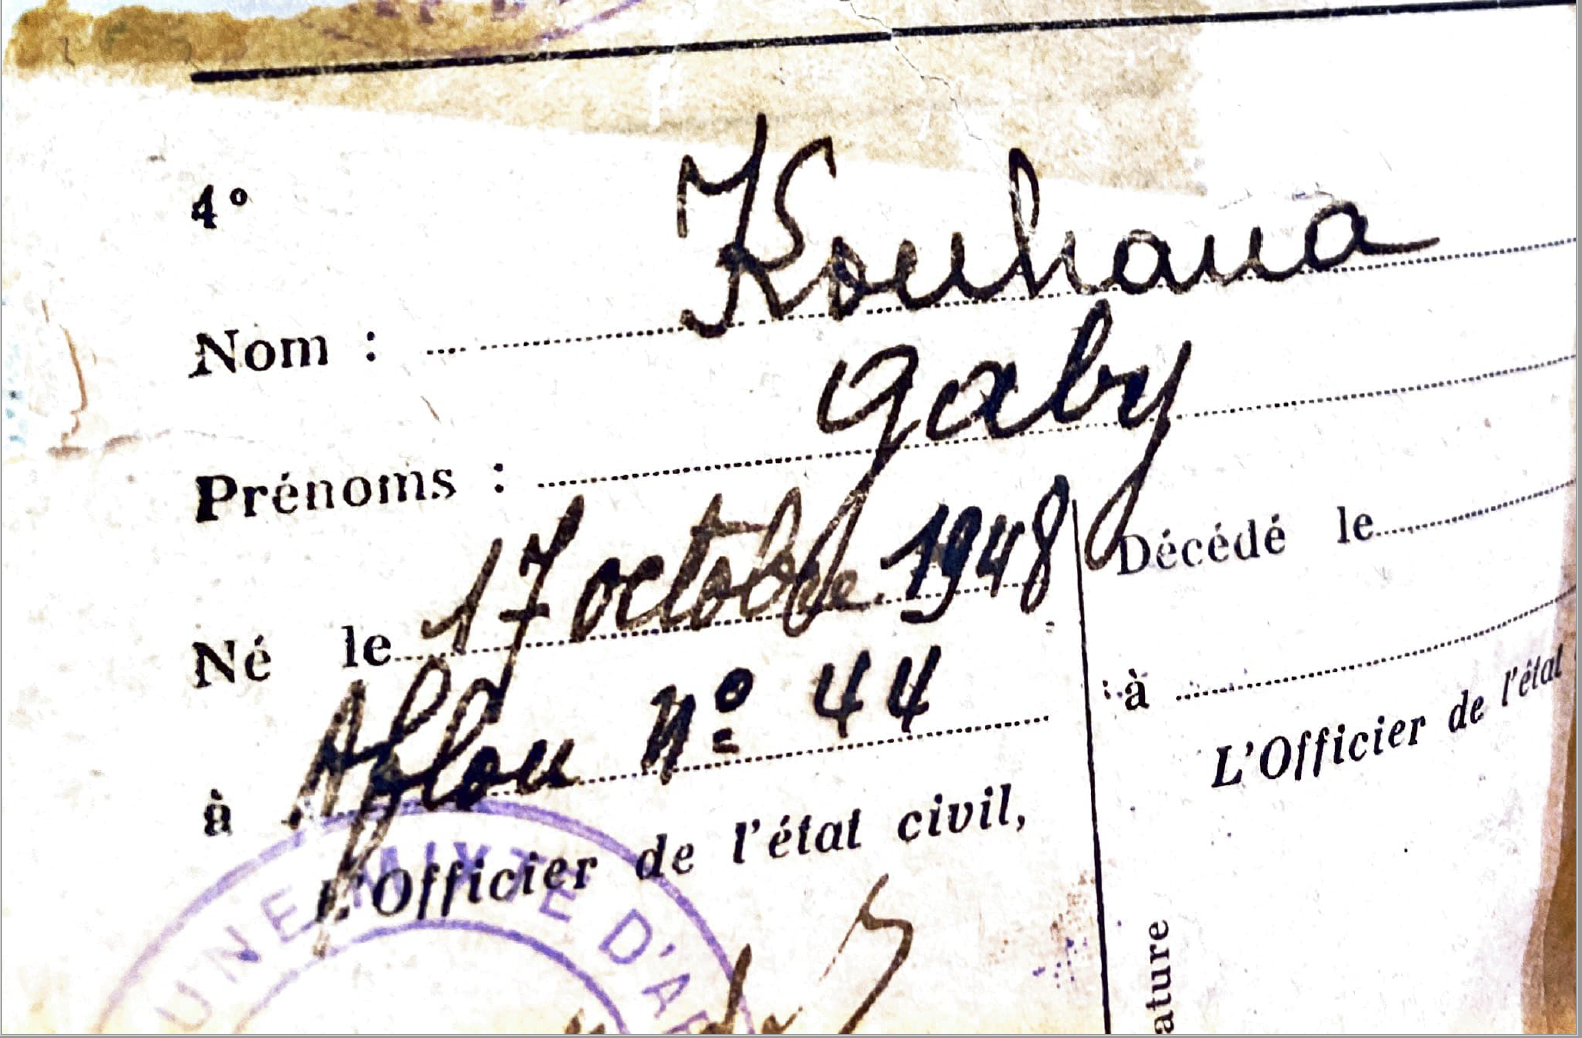 4°
Nom : Kouhana
Prénoms : Gaby
Né le 17 octobre 1948
à Aflou nº 44
L'Officier de l'état civil,
Décédé le
à
L'Officier de l'état
ature
UNE MIXTE D'A